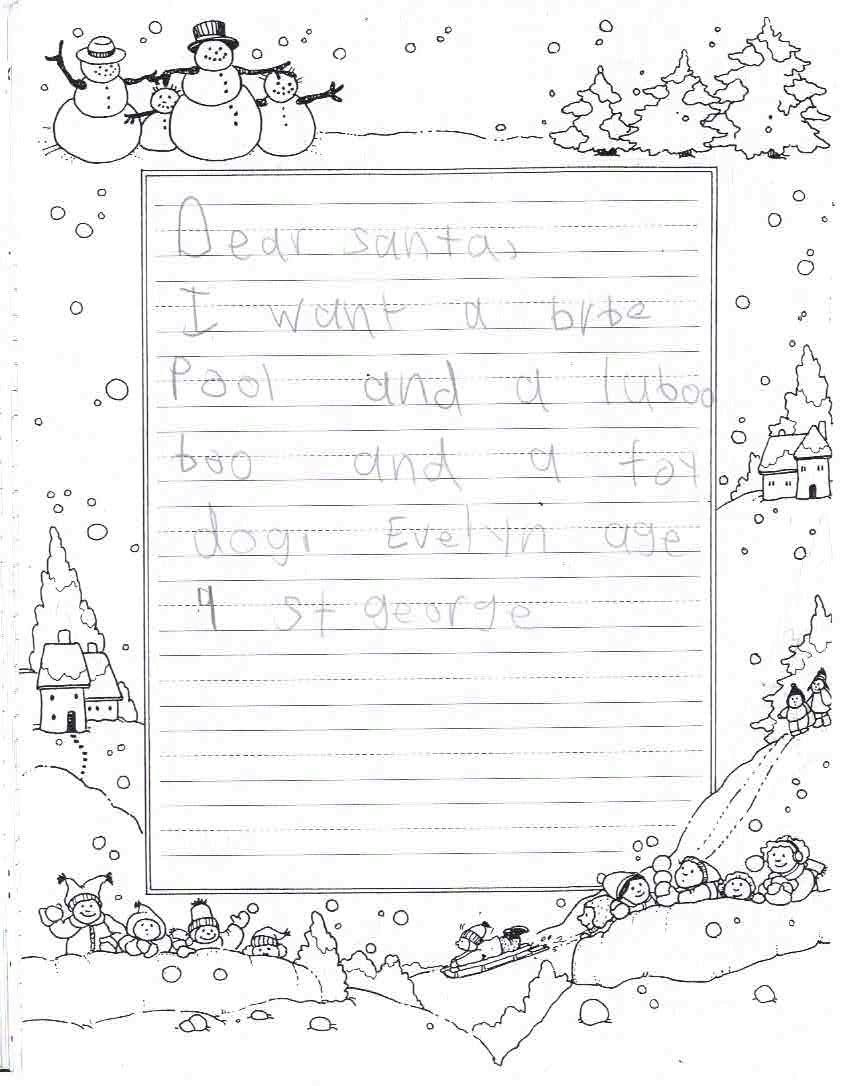 Dear santa,
I want a brbe
Pool and a luboo
boo and a toy
dog. Evelyn age
9 st george